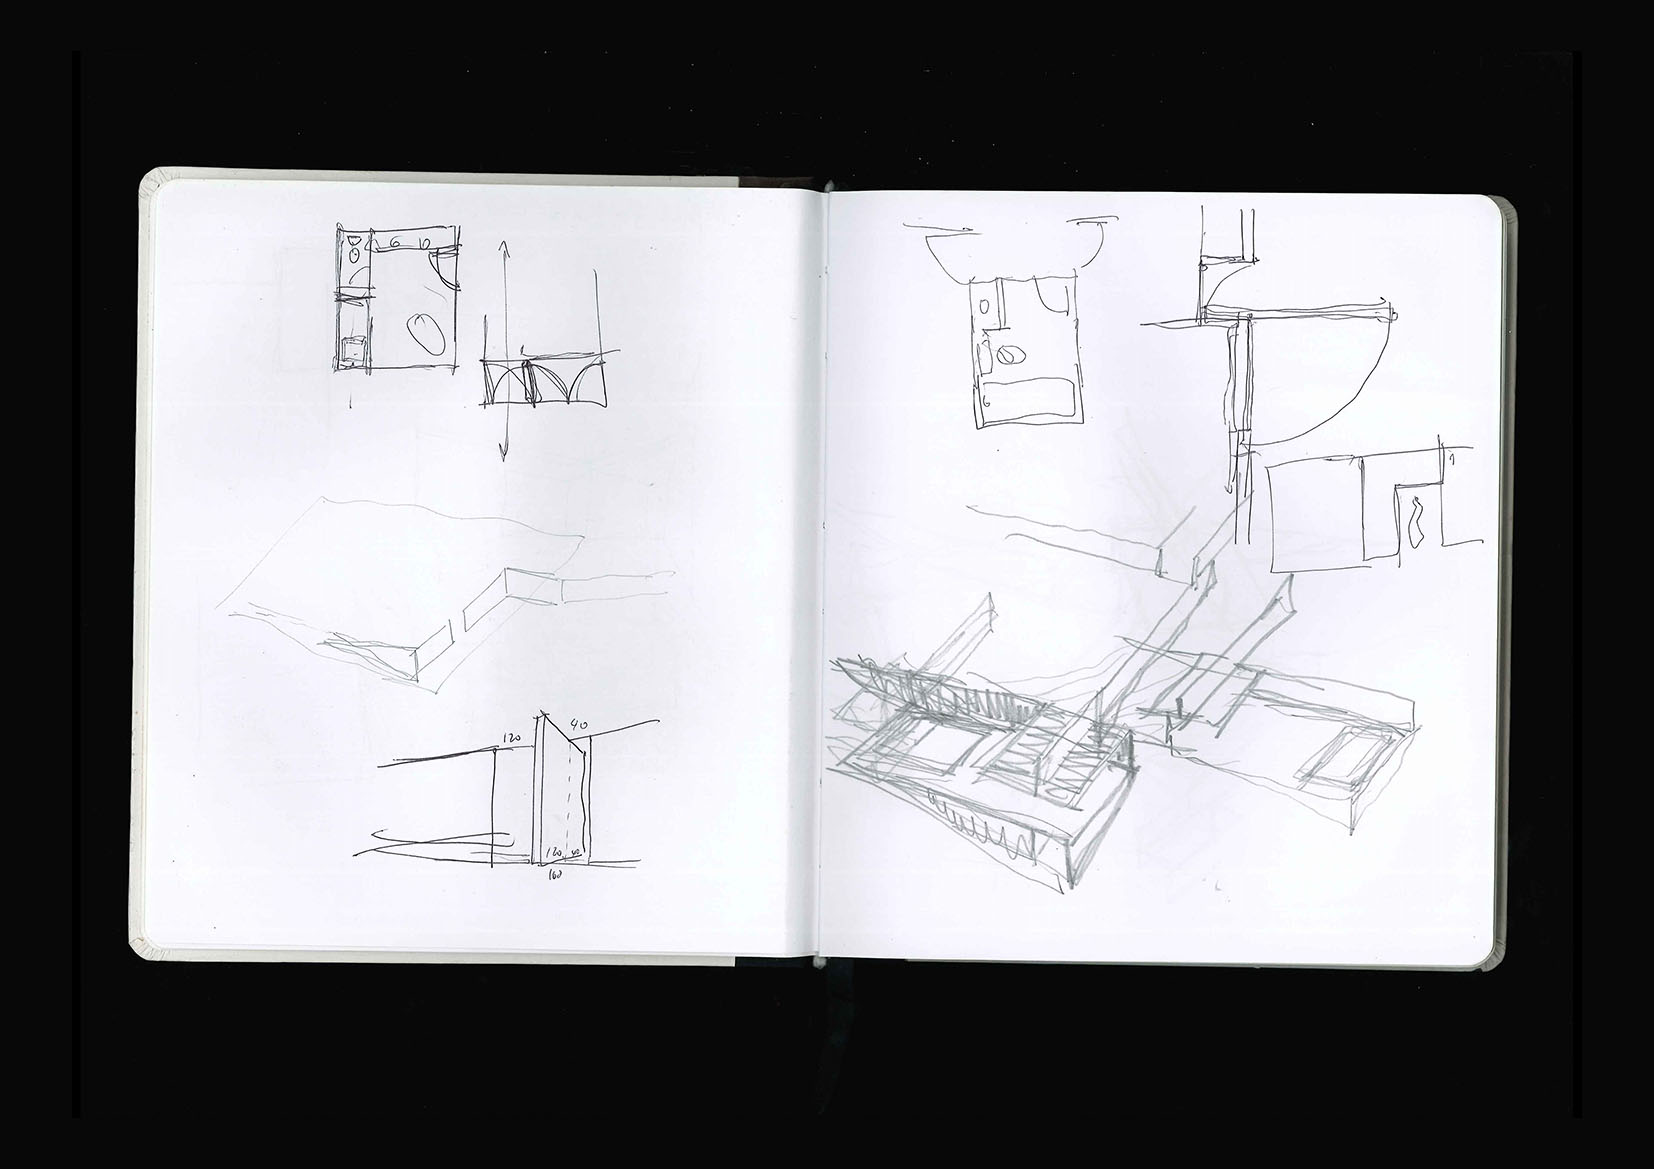 120
40
120 40
160